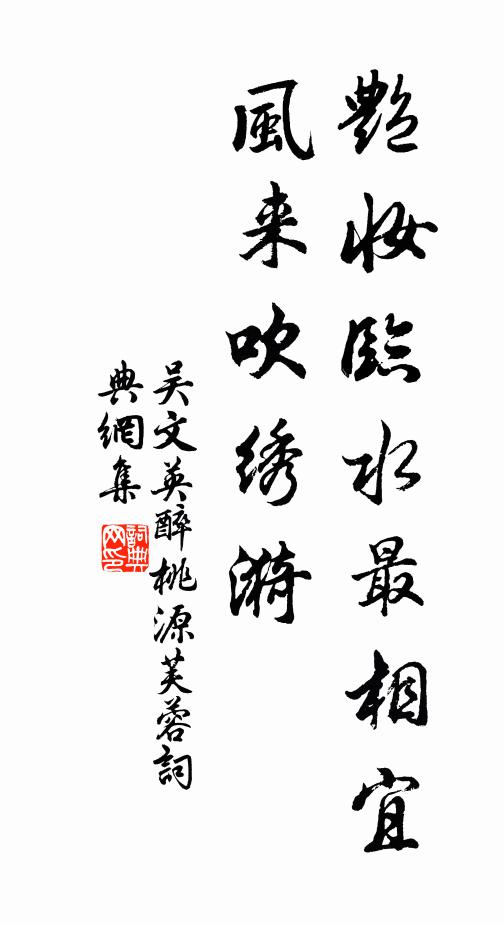 艷妆臨水最相宜
風来吹绣漪
吴文英醉桃源芙蓉詞
典網集
詞典网印